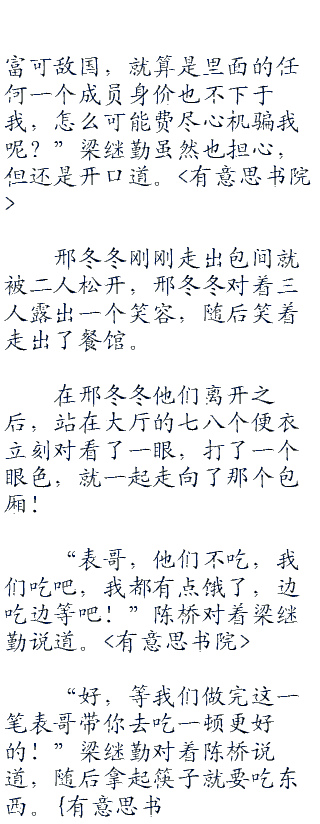 富可敌国，就算是里面的任
何一个成员身价也不下于
我，怎么可能费尽心机骗我
呢？”梁继勤虽然也担心，
但还是开口道。<有意思书院
>
邢冬冬刚刚走出包间就
被二人松开，邢冬冬对着三
人露出一个笑容，随后笑着
走出了餐馆。
在邢冬冬他们离开之
后，站在大厅的七八个便衣
立刻对看了一眼，打了一个
眼色，就一起走向了那个包
厢！
“表哥，他们不吃，我
们吃吧，我都有点饿了，边
吃边等吧！”陈桥对着梁继
勤说道。<有意思书院>
“好，等我们做完这一
笔表哥带你去吃一顿更好
的！”梁继勤对着陈桥说
道，随后拿起筷子就要吃东
西。{有意思书